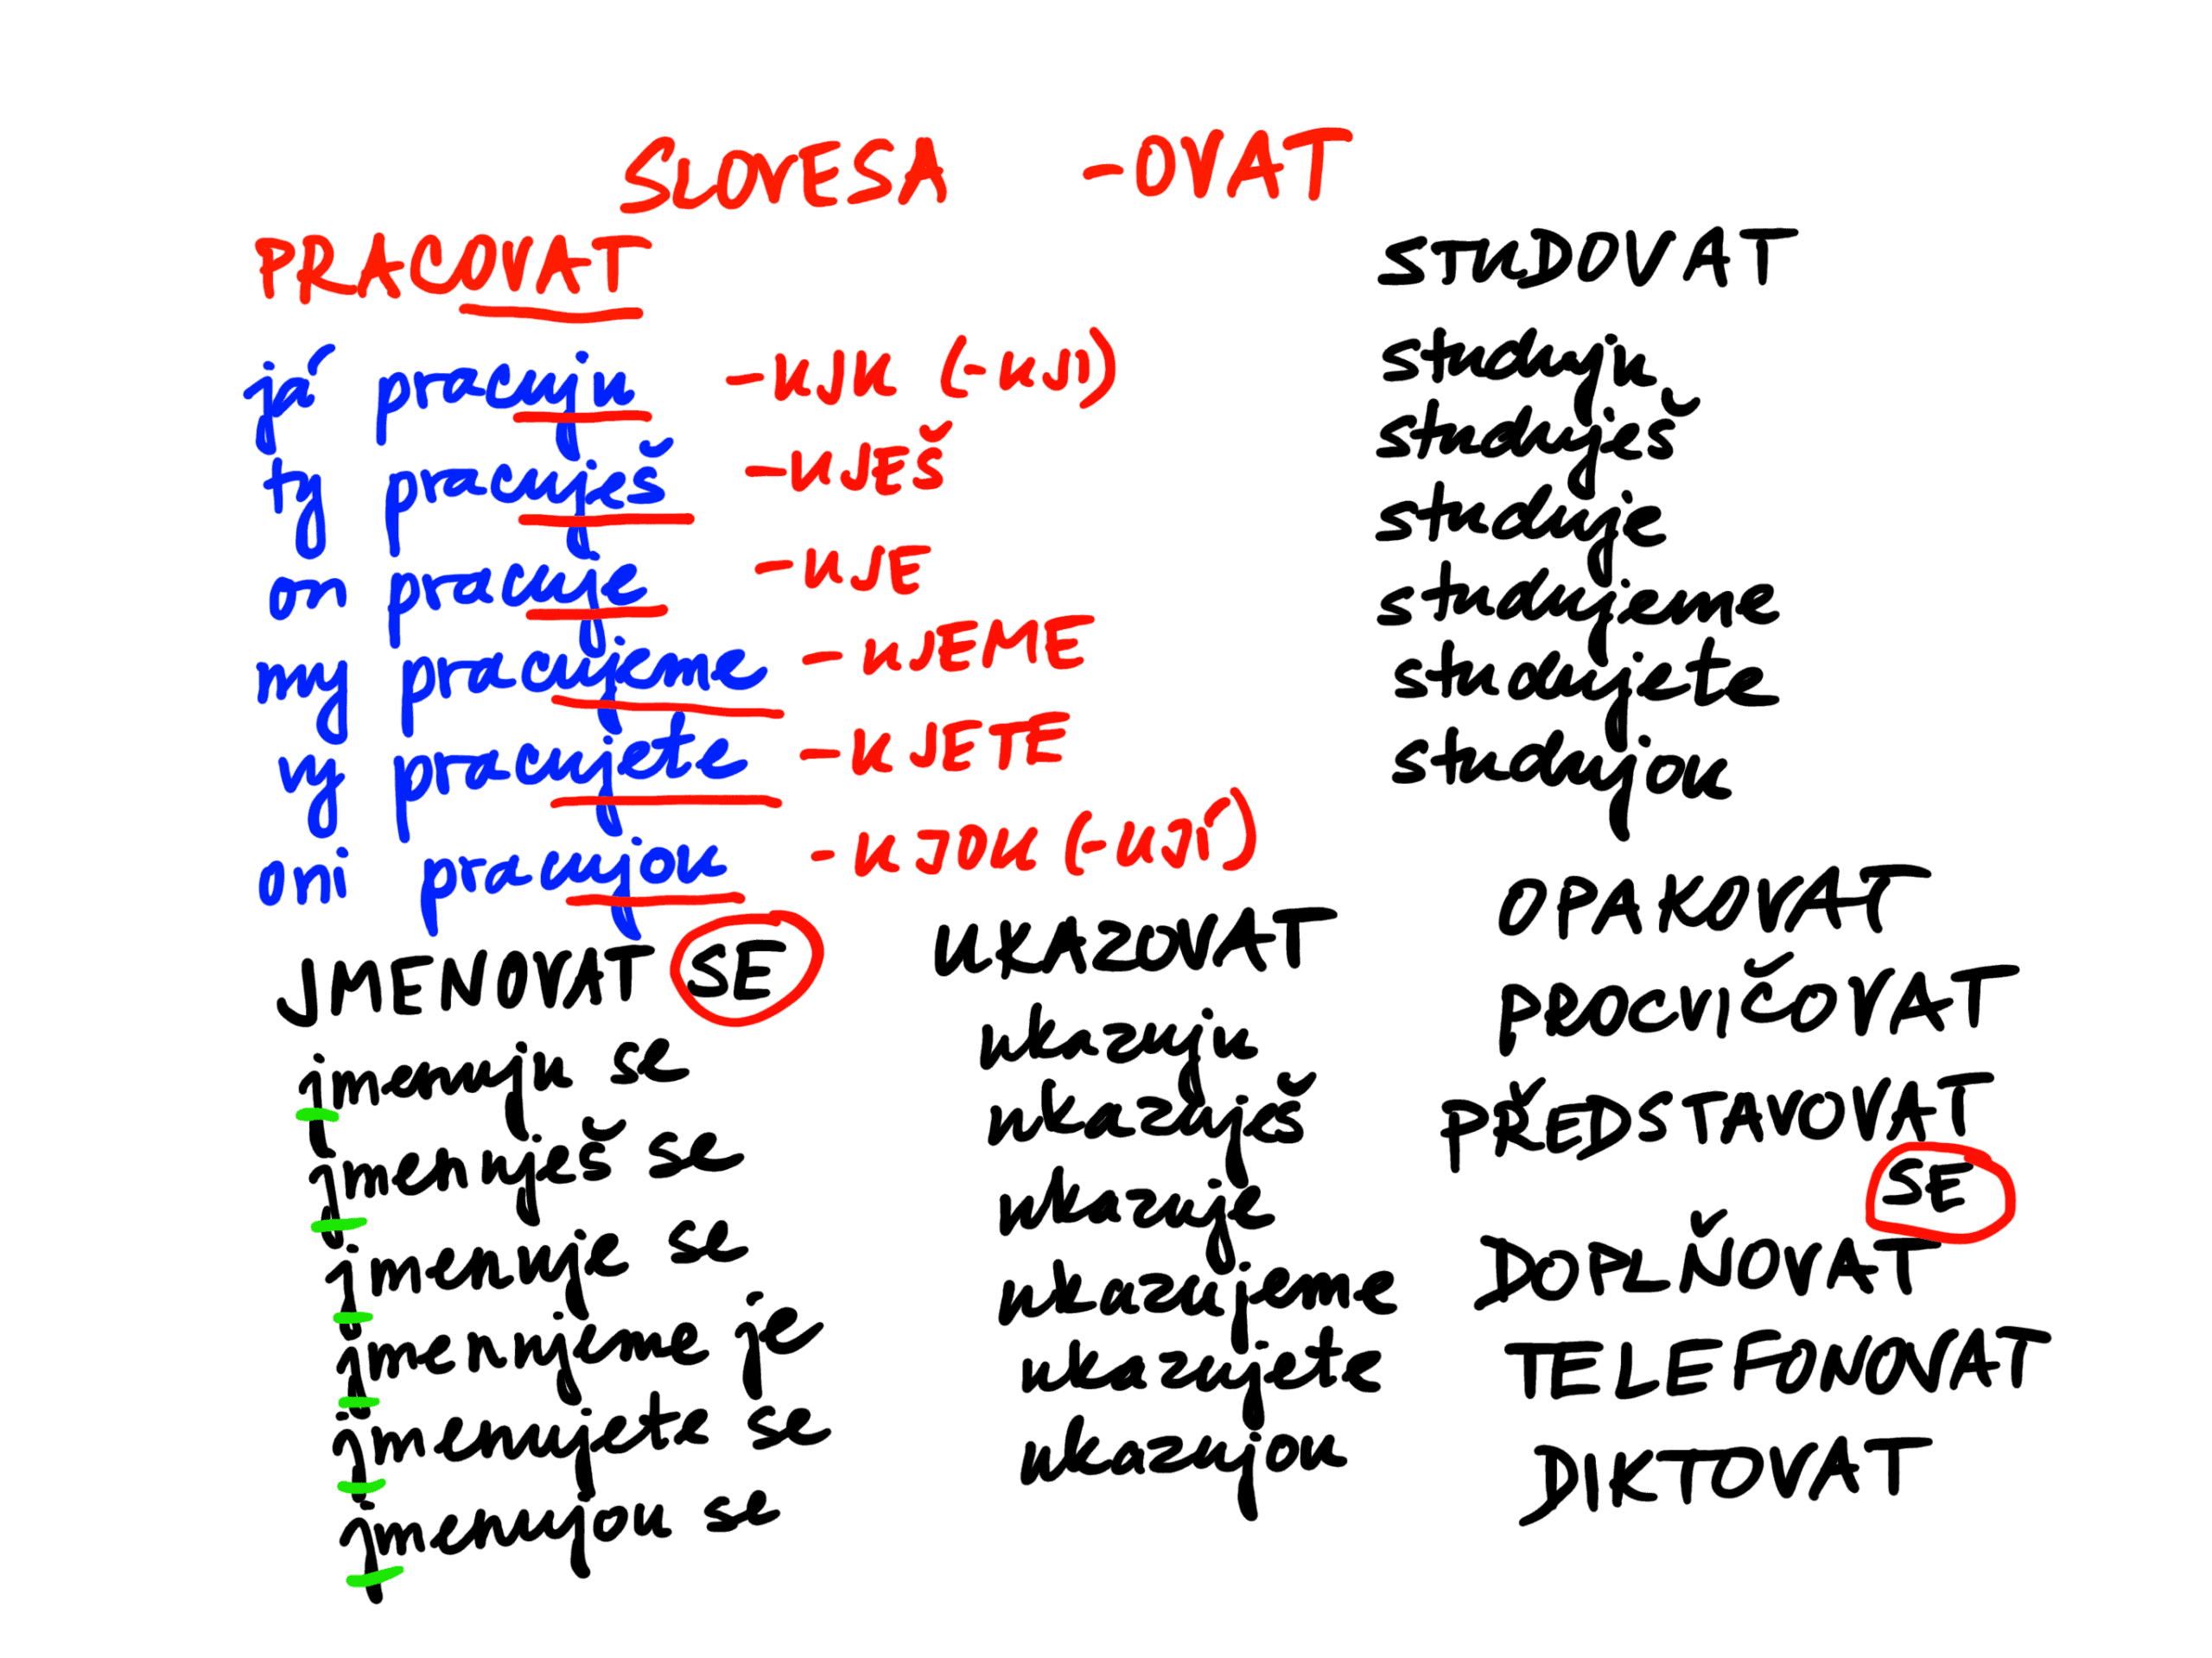 SLOVESA -OVAT
PRACOVAT
já pracuju -UJU (-UJI)
ty pracuješ -UJEŠ
on pracuje -UJE
my pracujeme -UJEME
vy pracujete -UJETE
oni pracujou -UJOU (-UJÍ)
STUDOVAT
studuju
studuješ
studuje
studujeme
studujete
studujou
JMENOVAT SE
jmenuju se
jmenuješ se
jmenuje se
jmenujeme je
jmenujete se
jmenujou se
UKAZOVAT
ukazuju
ukazuješ
ukazuje
ukazujeme
ukazujete
ukazujou
OPAKOVAT
PROCVIČOVAT
PŘEDSTAVOVAT
SE
DOPLŇOVAT
TELEFONOVAT
DIKTOVAT